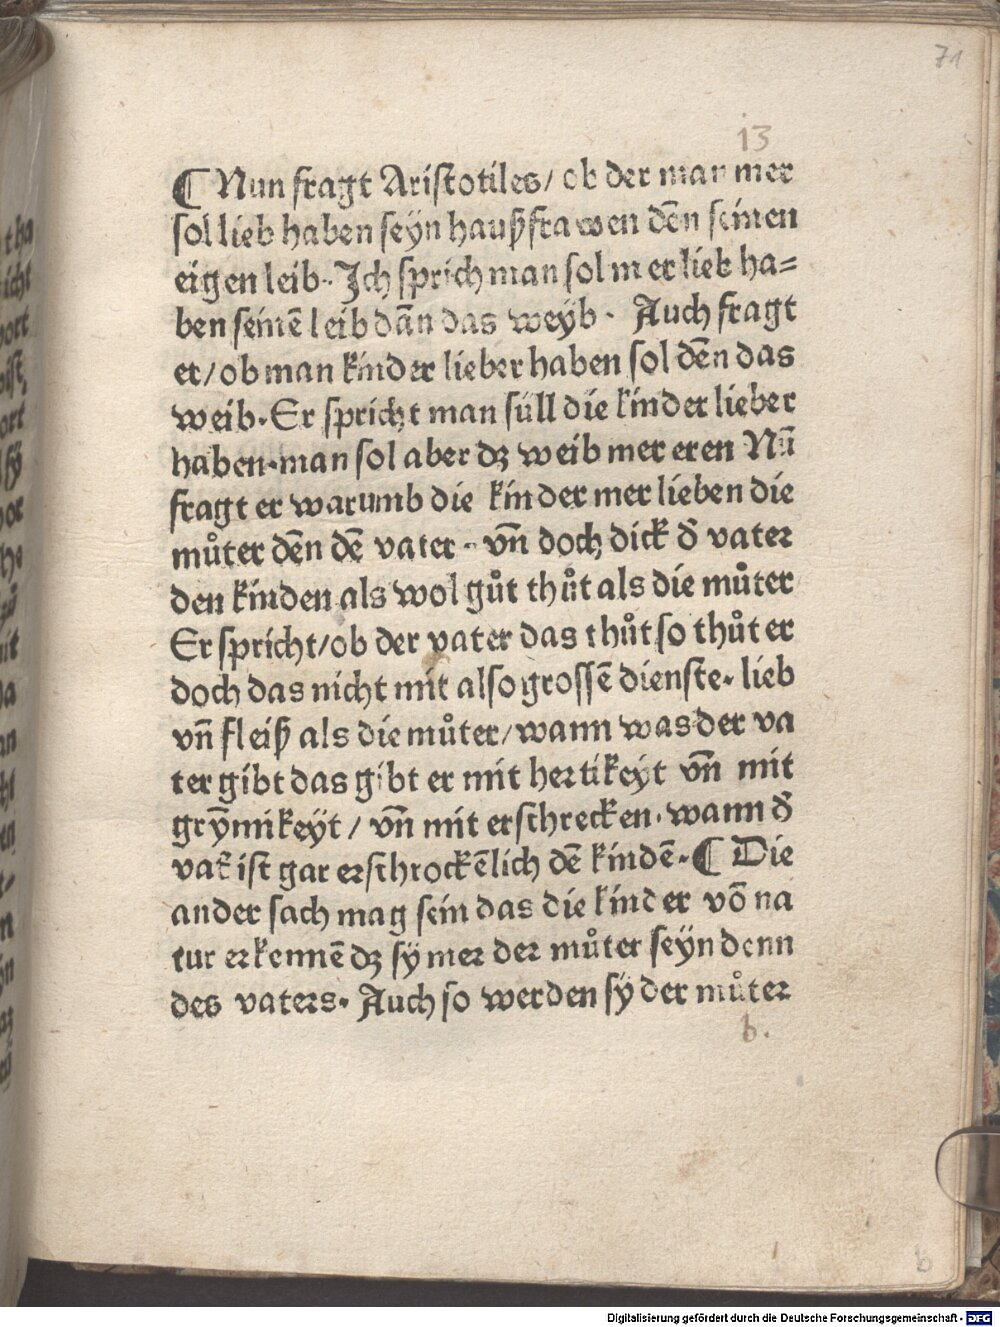 71
13
¶ Nun fragt Aristotiles/ ob der man mer
sol lieb haben seÿn haußfrawen dēn seinen
eigen leib. Ich sprich man sol mer lieb ha=
ben seinē leib dān das weÿb. Auch fragt
er/ ob man kinder lieber haben sol dēn das
weib. Er spricht man süll die kinder lieber
haben. man sol aber dʒ weib mer eren Nū
fragt er warumb die kinder mer lieben die
můter dēn dē vater. vn̄ doch dick d̄ vater
den kinden als wol gůt thůt als die můter
Er spricht/ ob der vater das thůt so thůt er
doch das nicht mit also grossē dienste. lieb
vn̄ fleiß als die můter/ wann was der va
ter gibt das gibt er mit hertikeyt vn̄ mit
grȳmikeÿt/ vn̄ mit erschrecken. wann d̄
vat̄ ist gar erschrockēlich dē kindē. ¶ Die
ander sach mag sein das die kinder vō na
tur erkennē dʒ sÿ mer der můter seÿn denn
des vaters. Auch so werden sÿ der můter
b.
b
Digitalisierung gefördert durch die Deutsche Forschungsgemeinschaft - DFG